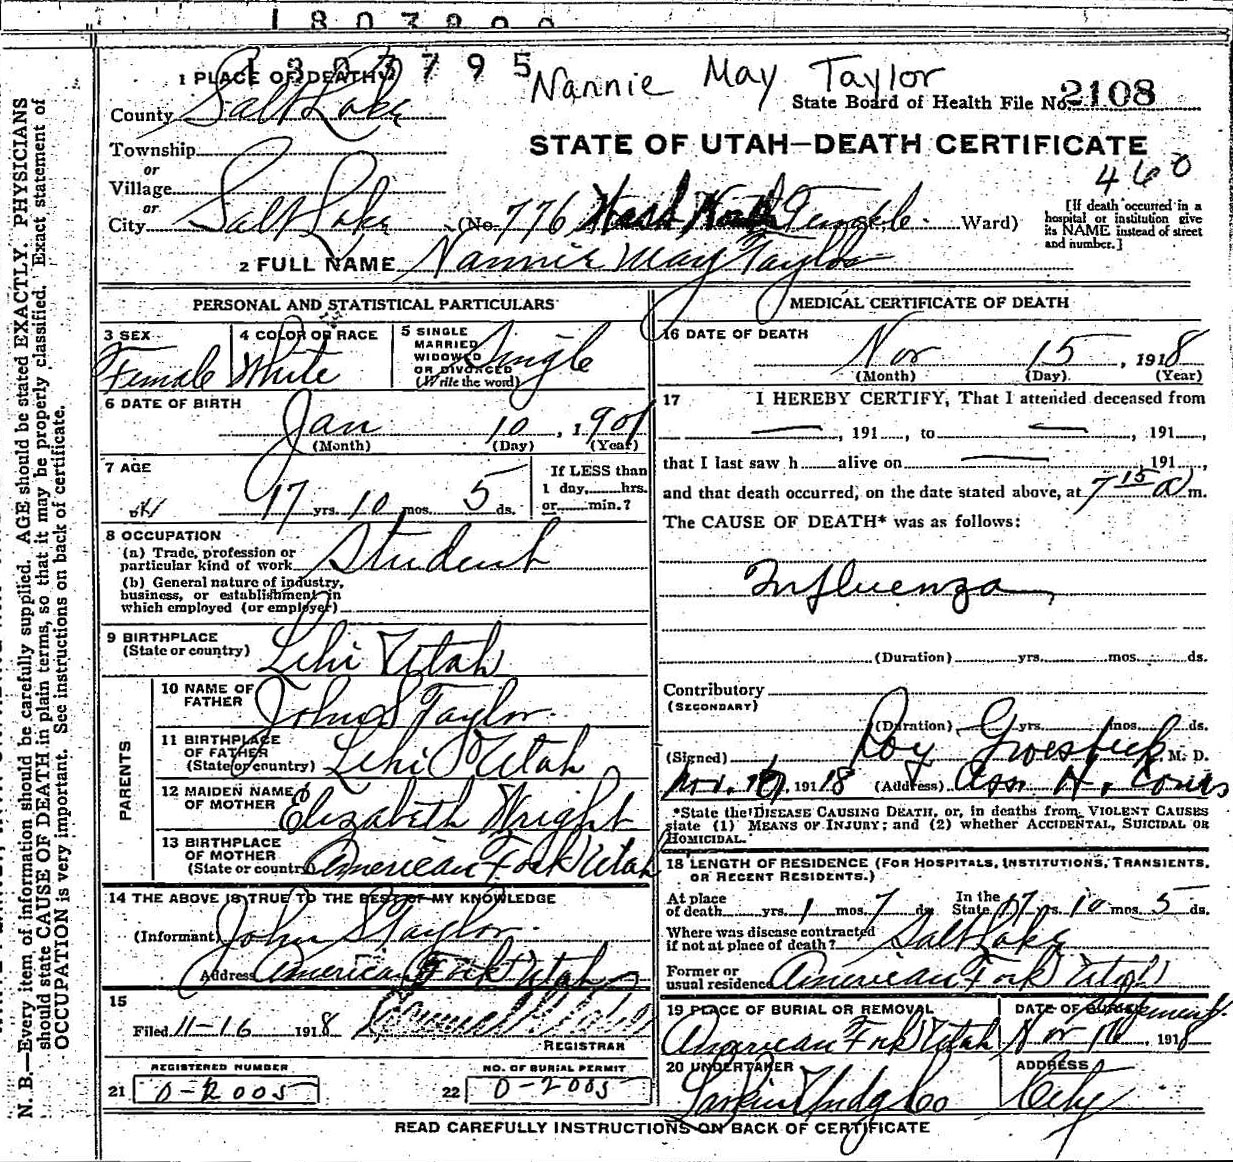 1303795
Nannie May Taylor
1 PLACE OF DEATH
State Board of Health File No. 2108
County Salt Lake
STATE OF UTAH—DEATH CERTIFICATE
Township
or
Village
or
460
City Salt Lake (No. 776 West North Temple. Ward)
[If death occurred in a hospital or institution give its NAME instead of street and number.]
2 FULL NAME Nannie May Taylor
PERSONAL AND STATISTICAL PARTICULARS
3 SEX
Female
4 COLOR OR RACE
White
5 SINGLE
MARRIED
WIDOWED
OR DIVORCED
(Write the word)
Single
6 DATE OF BIRTH
Jan 10, 1901
(Month) (Day) (Year)
7 AGE
17 yrs. 10 mos. 5 ds.
If LESS than
1 day, hrs.
or min.?
8 OCCUPATION
(a) Trade, profession or
particular kind of work Student
(b) General nature of industry,
business, or establishment in
which employed (or employer)
9 BIRTHPLACE
(State or country) Lehi Utah
PARENTS
10 NAME OF
FATHER John S Taylor.
11 BIRTHPLACE
OF FATHER
(State or country) Lehi Utah
12 MAIDEN NAME
OF MOTHER Elizabeth Wright
13 BIRTHPLACE
OF MOTHER
(State or country) American Fork Utah
14 THE ABOVE IS TRUE TO THE BEST OF MY KNOWLEDGE
(Informant) John S Taylor.
Address American Fork Utah
15
Filed 11-16 1918
REGISTRAR
REGISTERED NUMBER
21 0-2005
NO. OF BURIAL PERMIT
22 0-2005
MEDICAL CERTIFICATE OF DEATH
16 DATE OF DEATH
Nov 15, 1918
(Month) (Day) (Year)
17 I HEREBY CERTIFY, That I attended deceased from
— , 191 , to — , 191 ,
that I last saw h alive on — 191 ,
and that death occurred, on the date stated above, at 7 15 a m.
The CAUSE OF DEATH* was as follows:
Influenza
(Duration) yrs. mos. ds.
Contributory
(SECONDARY)
(Duration) yrs. mos. ds.
(Signed) Roy Groesbeck M. D.
Nov. 1918 (Address) Assn H. Coms
*State the DISEASE CAUSING DEATH, or, in deaths from VIOLENT CAUSES
state (1) MEANS OF INJURY; and (2) whether ACCIDENTAL, SUICIDAL OR
HOMICIDAL.
18 LENGTH OF RESIDENCE (FOR HOSPITALS, INSTITUTIONS, TRANSIENTS,
OR RECENT RESIDENTS.)
At place
of death yrs. 1 mos. 7 ds. In the
State 17 yrs. 10 mos. 5 ds.
Where was disease contracted
if not at place of death? Salt Lake
Former or
usual residence American Fork Utah
19 PLACE OF BURIAL OR REMOVAL
American Fork Utah
DATE OF
Nov 16, 1918
20 UNDERTAKER
Larkin Undg Co
ADDRESS
City
READ CAREFULLY INSTRUCTIONS ON BACK OF CERTIFICATE
N. B.—Every item of information should be carefully supplied. AGE should be stated EXACTLY. PHYSICIANS
should state CAUSE OF DEATH in plain terms, so that it may be properly classified. Exact statement of
OCCUPATION is very important. See instructions on back of certificate.